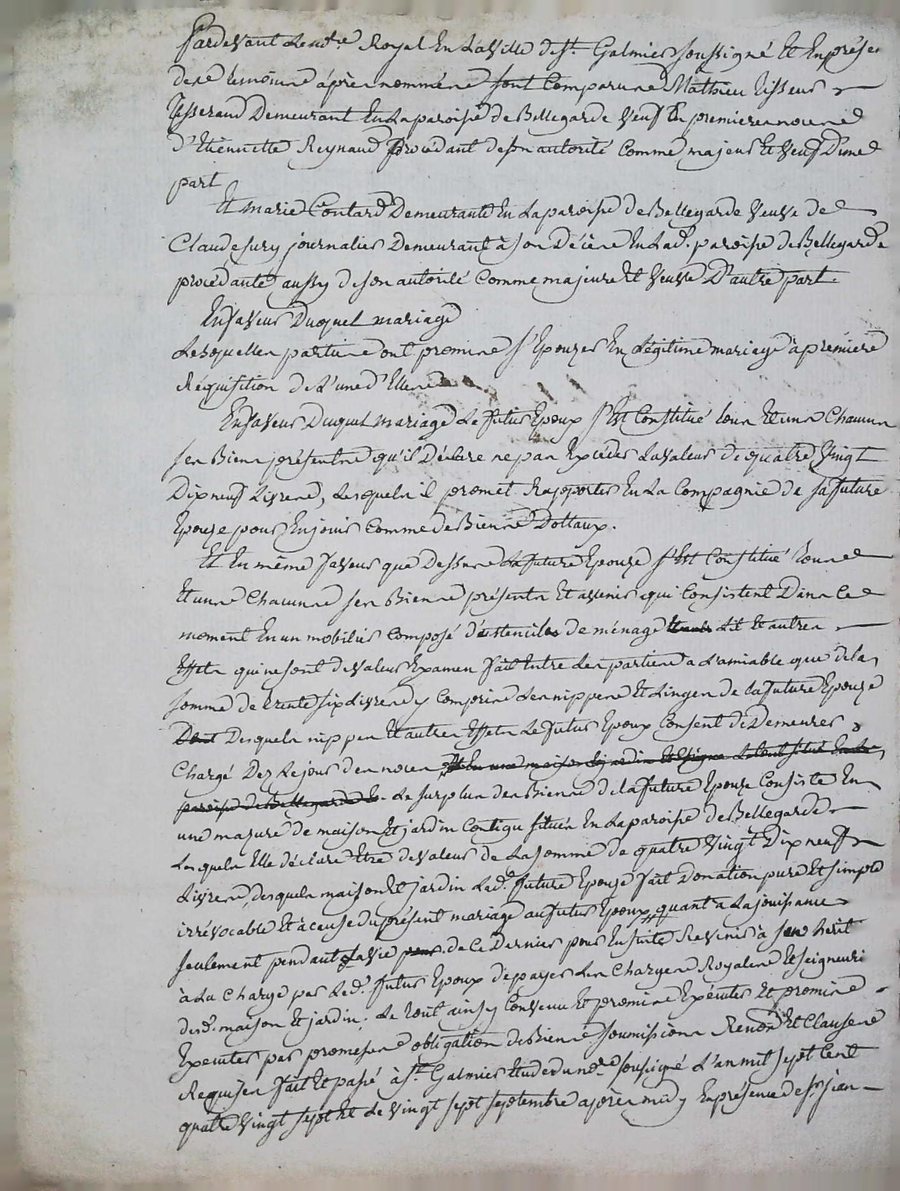 Pardevant Le no.re Royal En La Ville de St. Galmier soussigné Et En présen
de se temoins après nommés sont Comparus Mathieu tisseur
tisserand Demeurant En La paroisse de Bellegarde veuf En premieres noces
d'Etiennette Reynaud procedant de son autorité Comme majeur Et veuf D'une
part
Et marie Coutard Demeurante En La paroisse de Bellegarde veuve de
Claude Sury journalier Demeurant à son Décès En Lad. paroisse de Bellegarde
procedante aussy de son autorité Comme majeure Et veuve D'autre part
En faveur Duquel mariage
Lesquelles parties ont promis s'Epouzer En Légitime mariage à première
Réquisition de L'une d'Elles
En faveur Duquel mariage Le futur Epoux s'Est Constitué tous Et uns Chacuns
ses Biens présents qu'il Déclare ne pas Excéder La valeur de quatre vingt
Dix neuf Livres, Lesquels il promet Rapporter En La Compagnie de sa future
Epouze pour En jouir Comme de Biens Dottaux.
Et En même faveur que Dessus La future Epouze s'Est Constitué tous
Et uns Chacuns ses Biens présents Et avenir qui Consistent Dans Ce
moment En un mobilier composé d'ustenciles de ménage Lit Et autres
Effets qui ne sont de valeur Examen fait Entre Les parties a L'amiable que de la
somme de trente six Livres y Compris Les nippes Et Linges de la future Epouze
Dont Desquels nippes Et autres Effets Le futur Epoux Consent de Demeurer
Chargé Dez Le jour des noces Et En une maison Et jardin Et Situé En La
paroisse de Bellegarde Le surplus des Biens de la future Epouze Consiste En
une mazure de maison Et jardin Contigu situés En La paroisse de Bellegarde
Lesquels Elle déclare Etre de valeur de La somme de quatre vingt Dix neuf
Livres, desquels maison Et jardin Lad. future Epouze fait Donation pure Et simple
irrévocable Et à cause du présent mariage au futur Epoux quant a La jouissance
seulement pendant La vie de Ce Dernier pour Ensuite Revenir à ses hérit
à La Charge par Led. futur Epoux de payer Les Charges Royales Et seigneuri
desd. maison Et jardin; Le tout ainsy Convenu Et promis Exécuter Et promis
Exécuter par promesses obligation de Biens soumissions Renon Et Clauses
Requises fait Et passé à St. Galmier Etude du no.re soussigné L'an mil sept Cent
quatre vingt sept Et Le vingt sept septembre après midy En présence de sr. jean